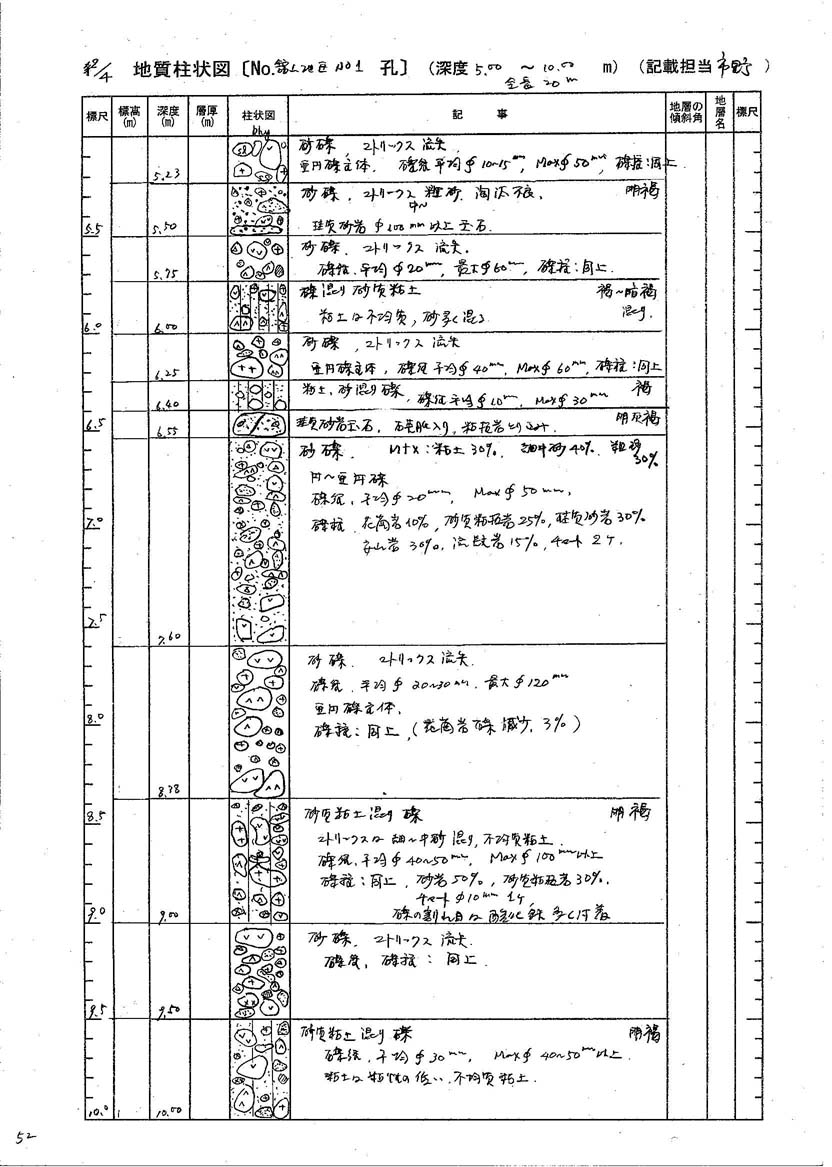 地質柱状図〔No. 地区 NO1 孔〕 (深度 5.00 ～ 10.00 m) (記載担当 市野 )
全長 20 m
標尺 標高(m) 深度(m) 層厚(m) 柱状図 記事 地層の傾斜角 地層名 標尺
砂礫、マトリックス流失.
5.23 亜円礫主体. 礫径平均φ10~15mm, Maxφ50mm, 礫種:同上
砂礫, マトリックス粗砂, 淘汰不良. 明褐
中~
5.5 5.50 珪質砂岩φ100mm以上玉石.
砂礫, マトリックス流失.
5.75 礫径, 平均φ20mm, 最大φ60mm, 礫種:同上.
礫混り砂質粘土 褐~暗褐
粘土は不均質, 砂多く混る 混り.
6.0 6.00
砂礫, マトリックス流失
6.25 亜円礫主体, 礫径平均φ40mm, Maxφ60mm, 礫種:同上
粘土, 砂混り礫, 礫径平均φ10mm, Maxφ30mm 褐
6.40
6.5 6.55 珪質砂岩玉石, 粘板岩 明灰褐
砂礫. Mtx:粘土30%. 細中砂40%. 粗砂30%
円~亜円礫
礫径, 平均φ20mm, Maxφ50mm,
7.0 礫種, 花崗岩10%, 砂質粘板岩25%, 珪質砂岩30%
安山岩30%. 流紋岩15%, チャート2ケ.
7.5
7.60
砂礫. マトリックス流失.
礫径, 平均φ20~30mm. 最大φ120mm
亜円礫主体.
8.0 礫種:同上, (花崗岩礫減少, 3%)
8.38
8.5 砂質粘土混り礫 明褐
マトリックスは細~中砂混り, 不均質粘土.
礫径, 平均φ40~50mm, Maxφ100mm以上
礫種:同上, 砂岩50%, 砂質粘板岩30%.
チャートφ10mm 1ケ,
9.0 9.00 礫の割れ目は酸化鉄多く付着
砂礫. マトリックス流失.
礫径, 礫種:同上.
9.5 9.50
砂質粘土混り礫 明褐
礫径, 平均φ30mm, Maxφ40~50mm以上.
粘土は粘性の低い, 不均質粘土.
10.0 10.00
52